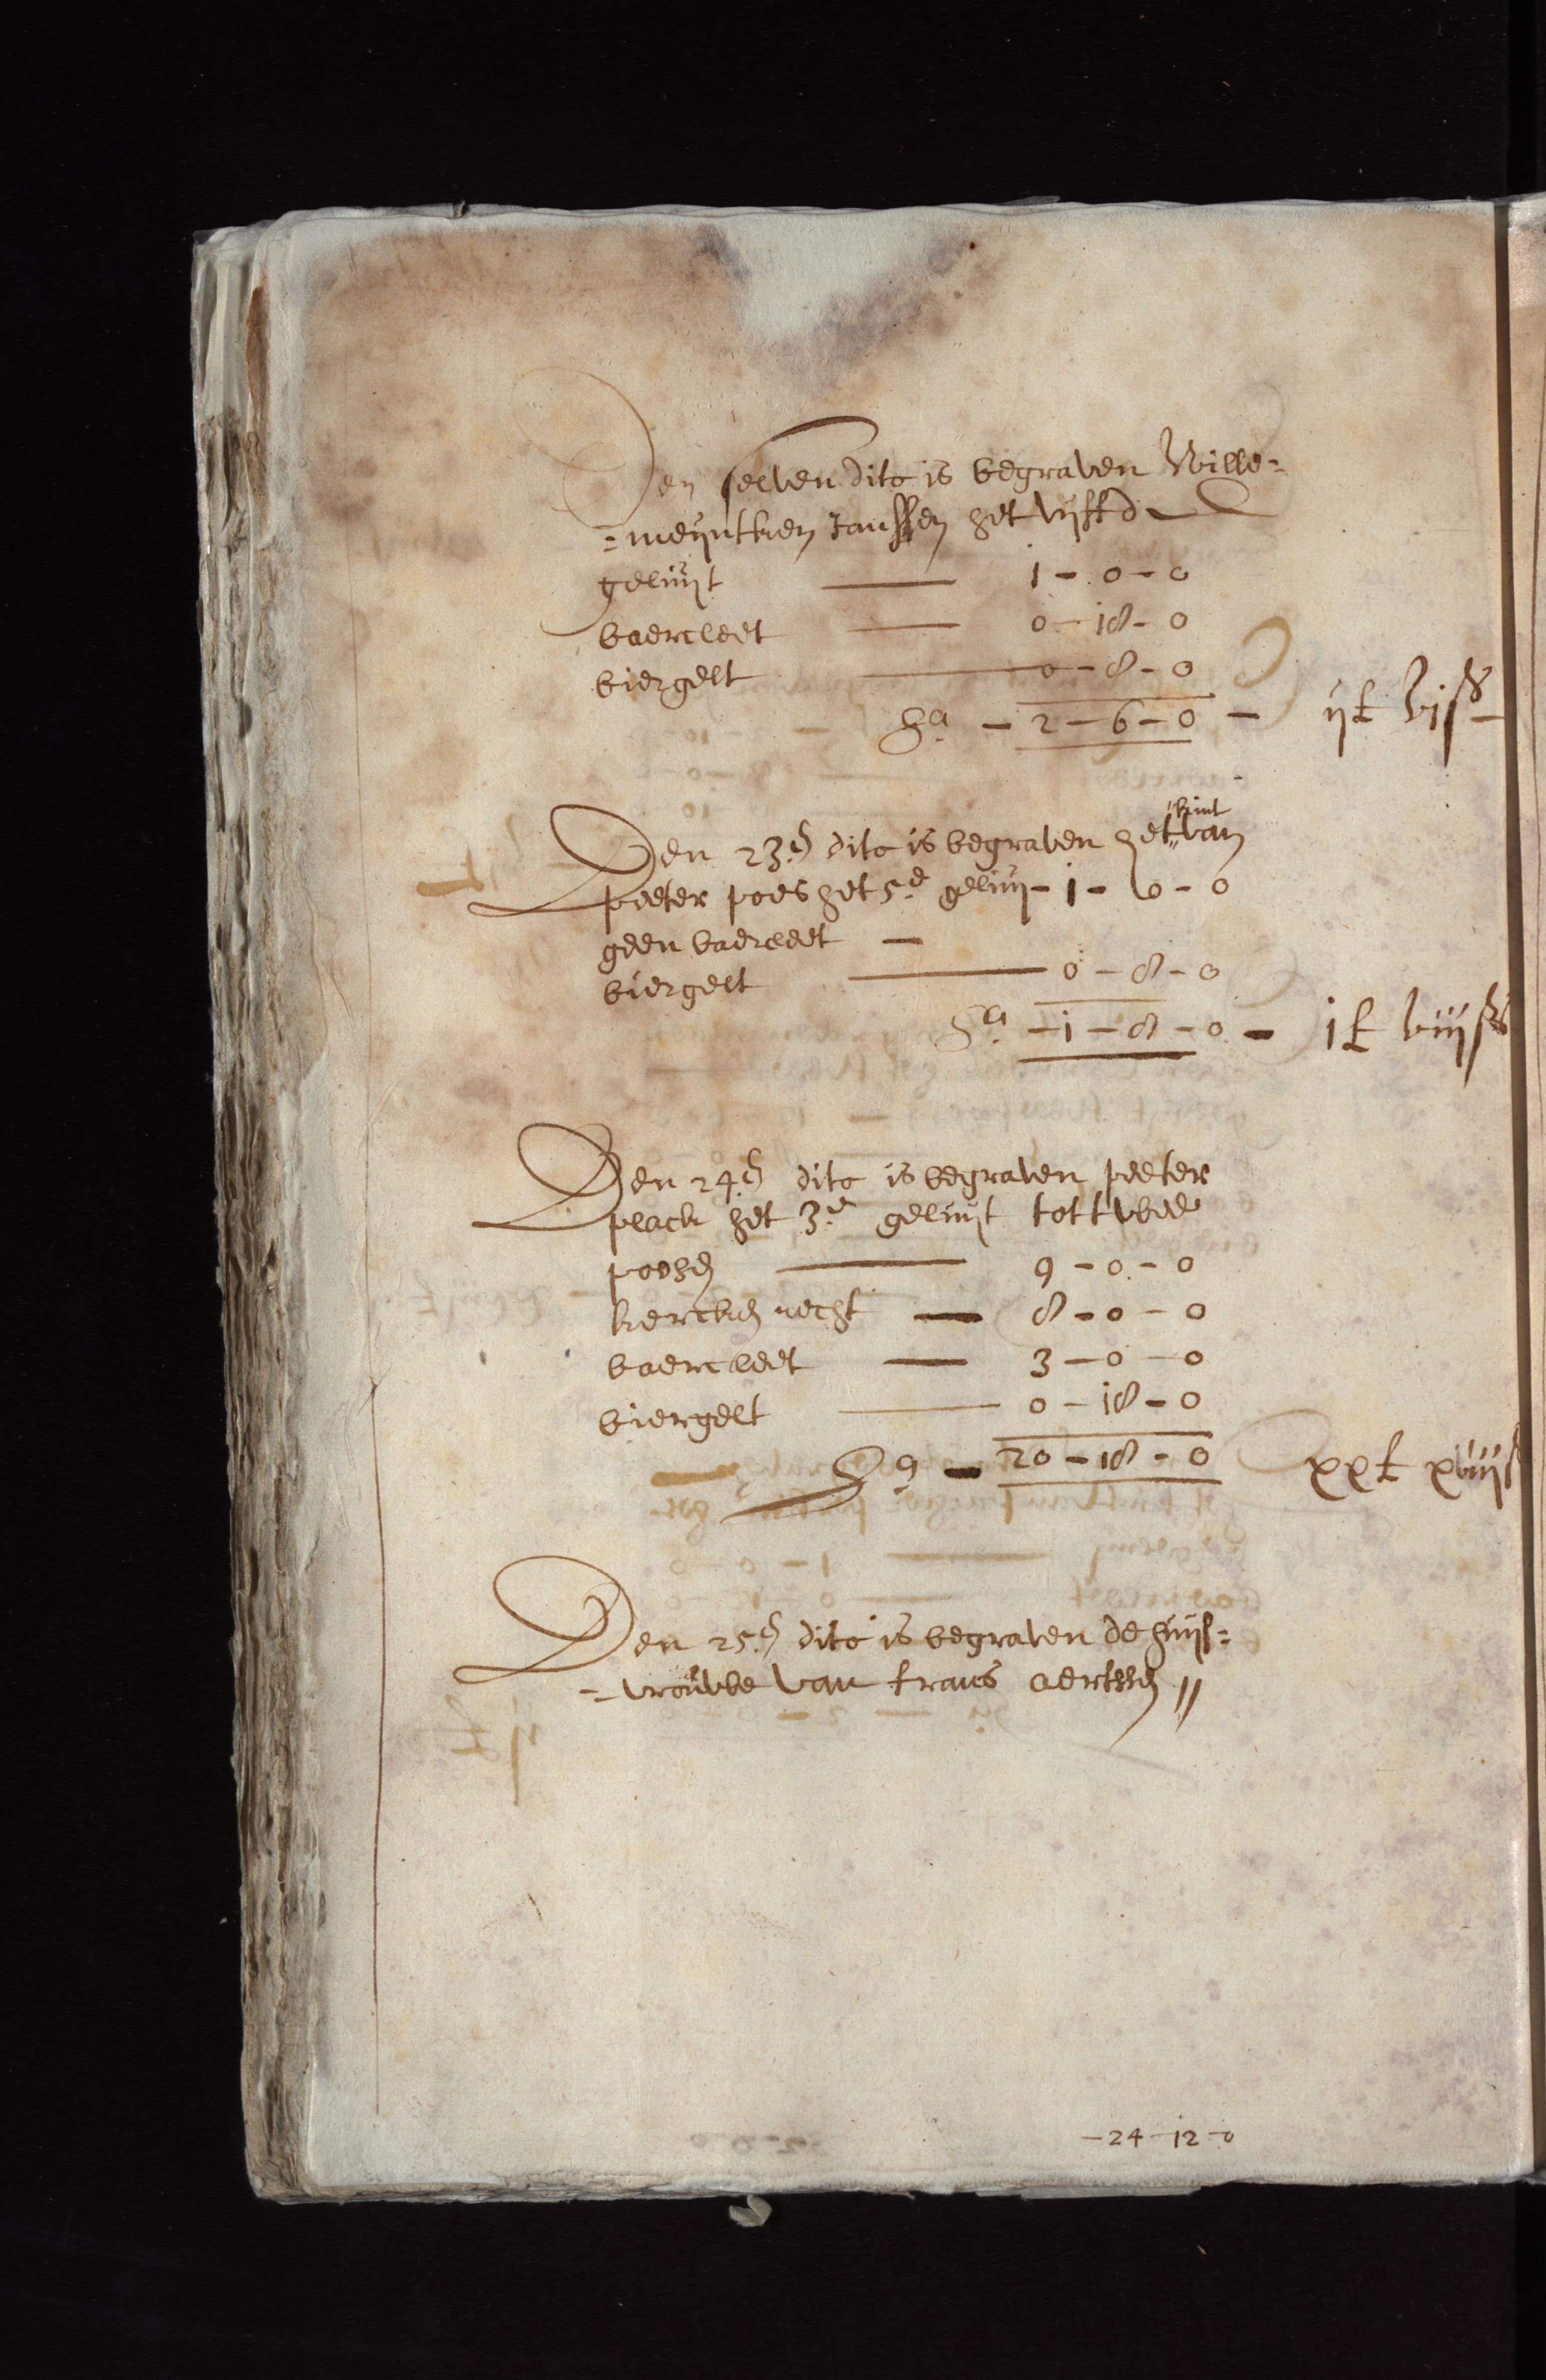 Den selven dito is begraven Wille=
=meijntken Janssen het vijftd
geluijt 1 - 0 - 0
baercleet 0 - 18 - 0
biergelt 0 - 8 - 0
Sa - 2 - 6 - 0 - ij£ vjß
kint
Den 23en dito is begraven het van
peeter poes het 5e geluij - 1 - 0 - 0
geen baercleet -
biergelt 0 - 8 - 0
Sa - 1 - 8 - 0 - j£ viijß
Den 24en dito is begraven peeter
plack het 3e geluijt tot twee
poosen 9 - 0 - 0
kercken recht 8 - 0 - 0
baercleet 3 - 0 - 0
biergelt 0 - 18 - 0
Sa - 20 - 18 - 0 xx£ xviijß
Den 25en dito is begraven de huijs=
=vrouwe van frans aertssen //
- 24 - 12 - 0